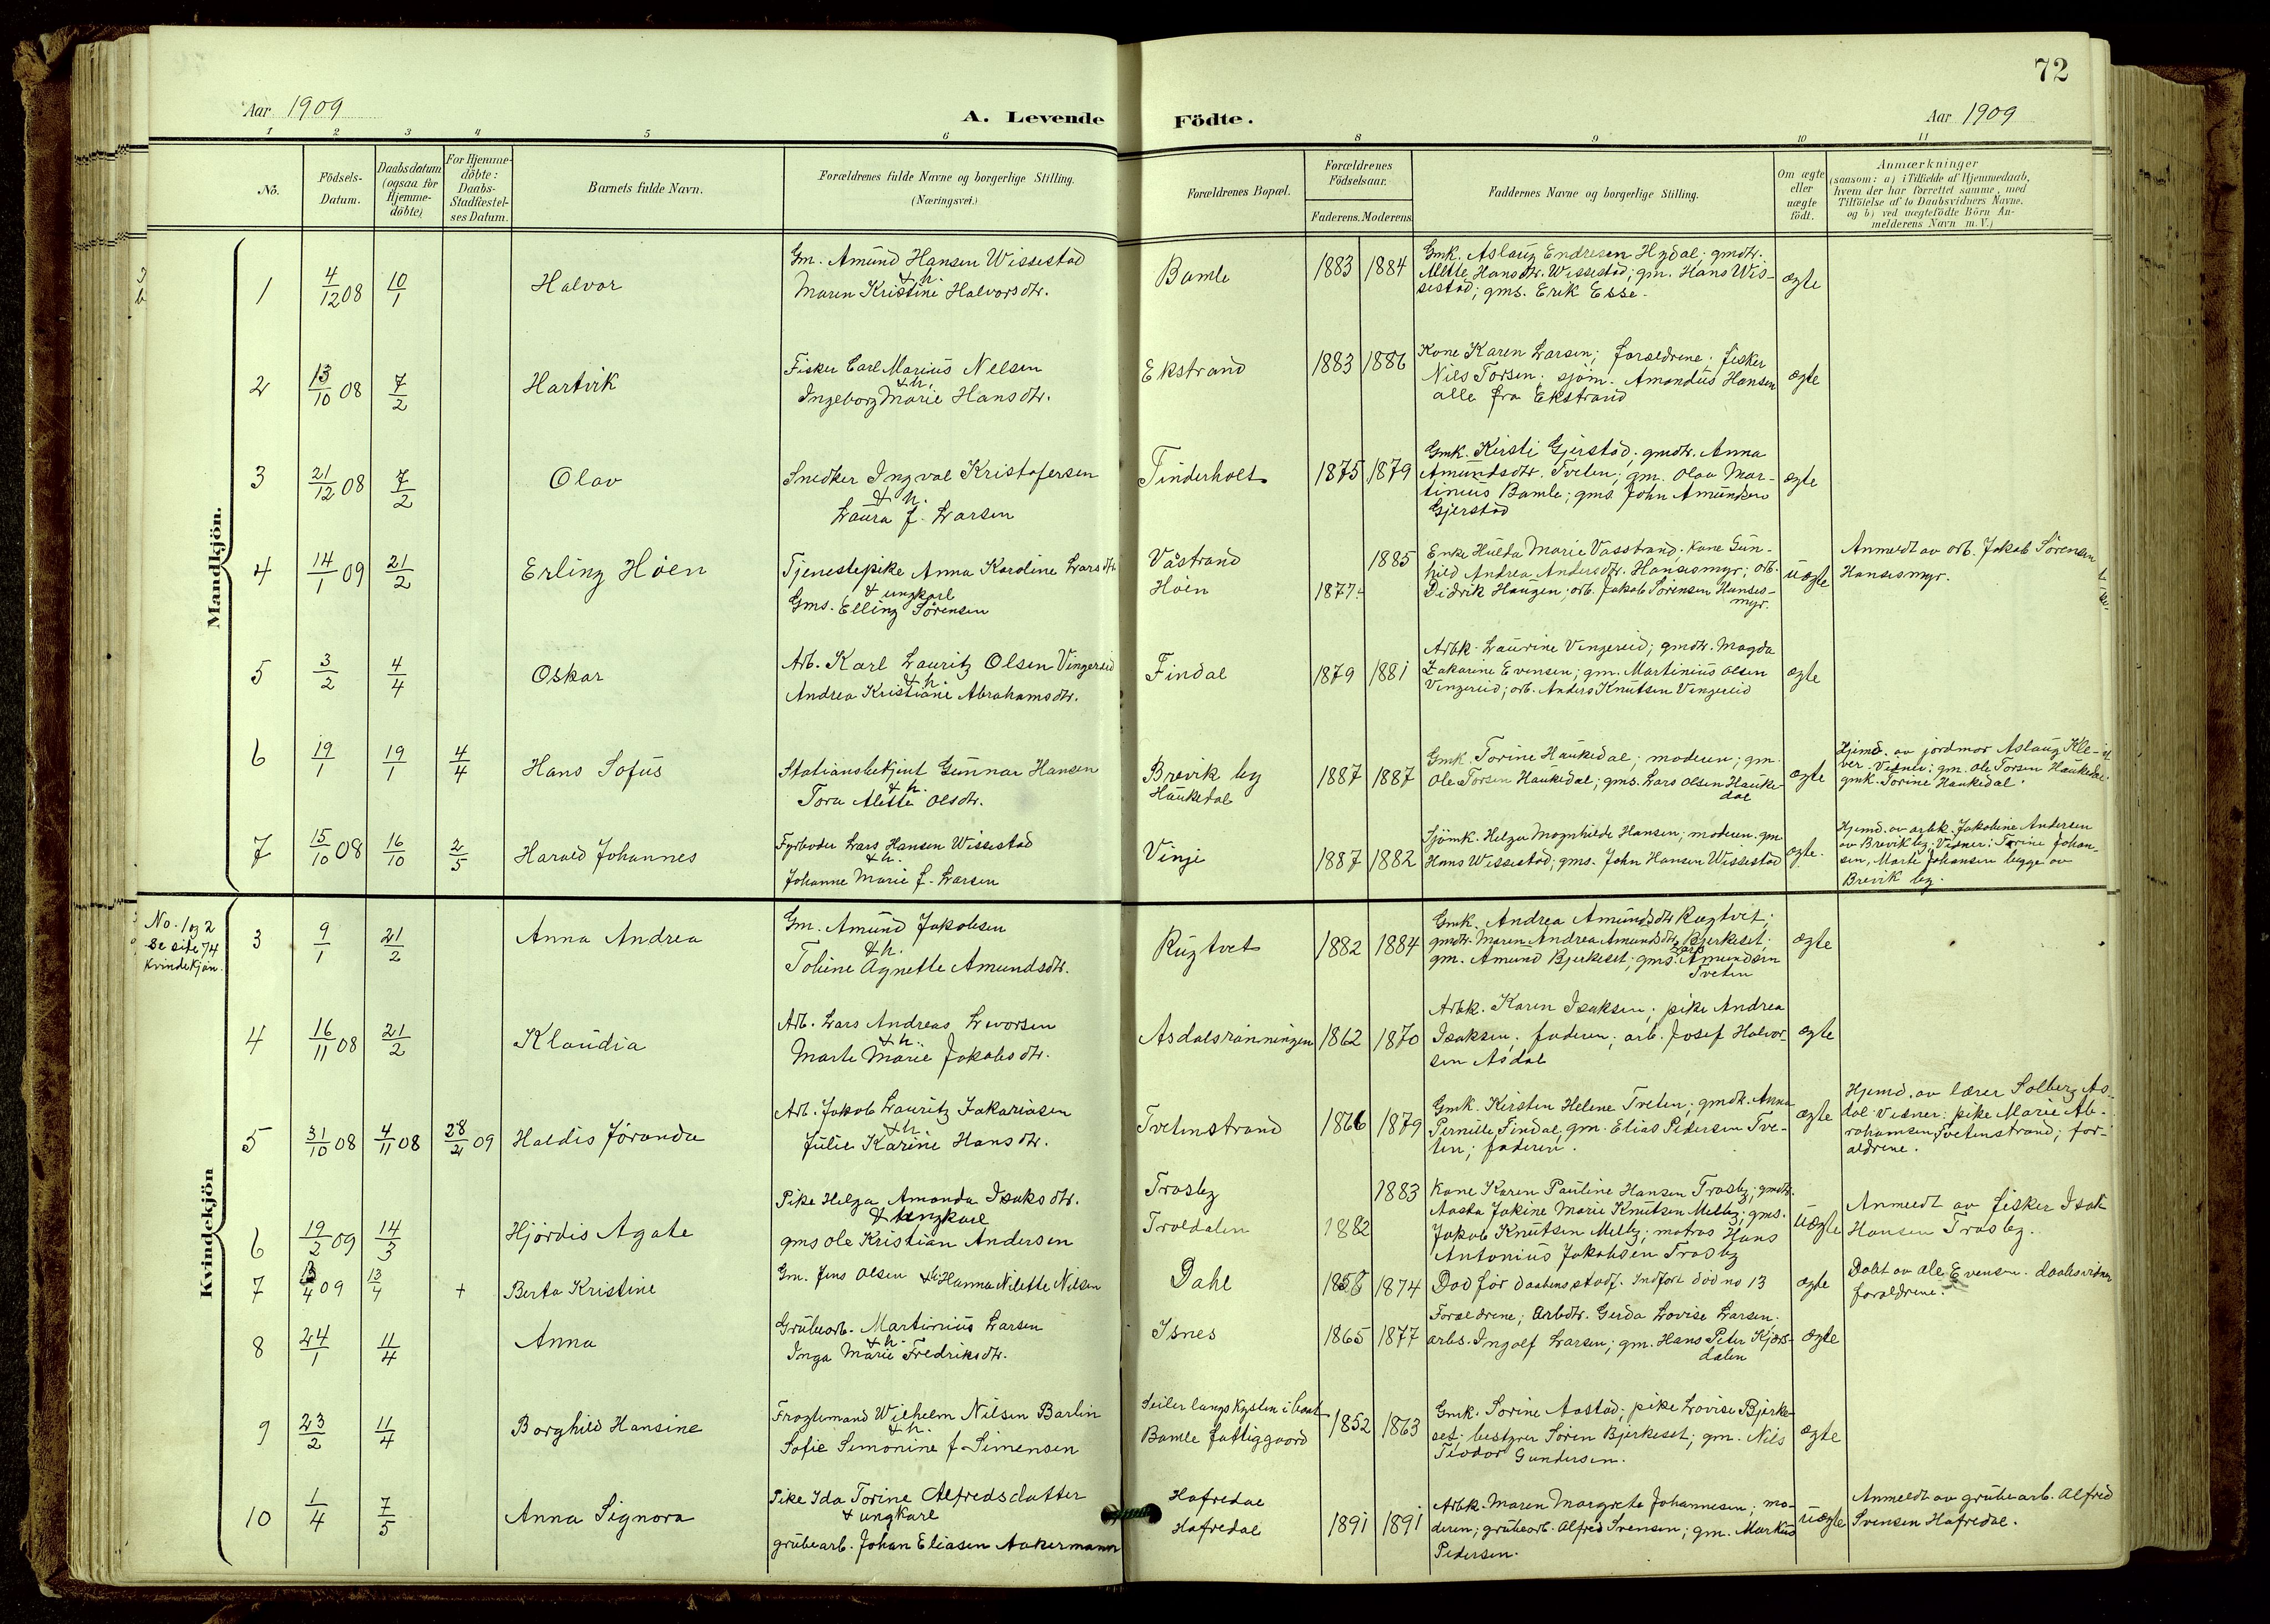 72
Aar 1909
A. Levende Födte.
Aar 1909
1 2 3 4 5 6 8 9 10 11
No.
Födsels-Datum.
Daabsdatum (ogsaa for Hjemme-döbte)
For Hjemme-döbte: Daabs-Stadfæstel-ses Datum.
Barnets fulde Navn.
Forældrenes fulde Navne og borgerlige Stilling. (Næringsvei.)
Forældrenes Bopæl.
Forældrenes Födselsaar.
Faderens. Moderens.
Faddernes Navne og borgerlige Stilling.
Om ægte eller uægte födt.
Anmærkninger
(saasom: a) i Tilfælde af Hjemmedaab,
hvem der har forrettet samme, med
Tilföielse af to Daabsvidners Navne.
og b) ved uægtefödte Börn An-
melderens Navn m.V.)
Mandkjön.
1 4/12 08 10/1 Halvor
Gm. Amund Hansen Wissestad
& h.
Maren Kristine Halvorsdtr.
Bamle 1883 1884
Gmk. Aslaug Endresen Hydal; gmdtr.
Alette Hansdtr. Wissestad; gm. Hans Wis-
sestad; gms. Erik Esse.
ægte
2 13/10 08 7/2 Hartvik
Fisker Carl Marius Nelsen
& h.
Ingeborg Marie Hansdtr.
Ekstrand 1883 1886
Kone Karen Larsen; forældrene. fisker
Nils Torsen; sjöm. Amandus Hansen
alle fra Ekstrand
ægte
3 21/12 08 7/2 Olav
Snedker Ingval Kristofersen
& h.
Laura f. Larsen
Tinderholt 1875 1879
Gmk. Kirsti Gjerstad; gmdtr. Anna
Amundsdtr. Tveten; gm. Olav Mar-
tinius Bamle; gms. John Amundsen
Gjerstad
ægte
4 14/1 09 21/2 Erling Höen
Tjenestepike Anna Karoline Larsdtr
& ungkarl
Gms. Elling Sörensen
Våstrand 1885
Höen 1877.
Enke Hulda Marie Vasstrand; kone Gun-
hild Andrea Andersdtr. Hansesmyr; arb.
Didrik Haugen; arb. Jakob Sörensen Hanses-
myr.
uægte
Anmeldt av arb. Jakob Sörensen
Hansesmyr.
5 3/2 4/4 Oskar
Arb. Karl Lauritz Olsen Vingereid
& h.
Andrea Kristiane Abrahamsdtr.
Findal 1879 1881
Arbk. Laurine Vingereid; gmdtr. Magda
Zakarine Evensen; gm. Martinius Olsen
Vingereid; arb. Anders Knutsen Vingereid
ægte
6 19/1 19/1 4/4 Hans Sofus
Stationsbetjent Gunnar Hansen
& h.
Tora Alette Olsdtr.
Brevik by
Haukedal
1887 1887
Gmk. Torine Haukedal; moderen; gm.
Ole Torsen Haukedal; gms. Lars Olsen Hauke-
dal
ægte
Hjemd. av jordmor Aslaug Kle-
ver. Vidner: gm. Ole Torsen Haukedal
gmk. Torine Haukedal.
7 15/10 08 16/10 2/5 Harald Johannes
Fyrböder Lars Hansen Wissestad
& h.
Johanne Marie f. Larsen
Vinje 1887 1882
Sjömk. Helga Magnhilde Hansen; moderen. gm
Hans Wissestad; gms. John Hansen Wissestad
ægte.
Hjemd. av arbk. Jakobine Andersen
av Brevik by. Vidner: Torine Johan-
sen, Marte Johansen begge av
Brevik by.
No. 1 og 2
Se side 74
Kvindekjön.
Kvindekjön
3 9/1 21/2 Anna Andrea
Gm. Amund Jakobsen
& h.
Toline Agnette Amundsdtr.
Rugtvet 1882 1884
Gmk. Andrea Amundsdtr Rugtvet;
gmdtr. Maren Andrea Amundsdtr. Bjerkeset;
gm. Amund Bjerkeset; gms. Lars Amundsen
Tveten
ægte
4 16/11 08 21/2 Klaudia
Arb. Lars Andreas Levorsen
& h.
Marte Marie Jakobsdtr.
Asdalsrönningen 1862 1870
Arbk. Karen Isaksen; pike Andrea
Isaksen; faderen; arb. Josef Halvor-
sen Asdal
ægte
5 31/10 08 4/11 08 28/2 09 Haldis Jöranda
Arb. Jakob Lauritz Zakariasen
& h.
Julie Karine Hansdtr.
Tvetenstrand 1866 1879
Gmk. Kirsten Helene Tveten; gmdtr. Anna
Pernille Findal; gm. Elias Pedersen Tve-
ten; faderen.
ægte
Hjemd. av lærer Solberg As-
dal. Vidner: pike Marie Ab-
rahamsen, Tvetenstrand; for-
ældrene.
6 19/2 09 14/3 Hjördis Agate
Pike Helga Amanda Isaksdtr.
& ungkarl
gms Ole Kristian Andersen
Trosby 1883
Troldalen 1882
Kone Karen Pauline Hansen Trosby; gmdtr.
Aasta Jakine Marie Knutsen Melby; gms.
Jakob Knutsen Melby; matros Hans
Antonius Jakobsen Trosby
uægte
Anmeldt av fisker Isak
Hansen Trosby.
7 13/4 09 13/4 + Berta Kristine
Gm. Jens Olsen & h. Hanna Nilette Nilsen
Dahl 1858 1874
Död för daabens stadf. Indfört död no 13
ægte
Döbt av Ole Evensen. daabsvidner
forældrene.
8 24/1 11/4 Anna
Grubearb. Martinius Larsen
& h.
Inga Marie Fredriksdtr.
Isnes 1865 1877
Forældrene; Arbdtr. Gerda Lovise Larsen;
arbs. Ingolf Larsen; gm. Hans Peter Kjörs-
dalen
ægte
9 23/2 11/4 Borghild Hansine
Fragtemand Wilhelm Nilsen Barlin
& h.
Sofie Simonine f. Simensen
Seiler langs kysten i baat
Bamle fattiggaard
1852 1863
Gmk. Sorine Aastad; pike Lovise Bjerke-
set; bestyrer Sören Bjerkeset; gm. Nils
Teodor Gundersen.
ægte
10 1/4 7/5 Anna Signora
Pike Ida Torine Alfredsdatter
& ungkarl
grubearb. Johan Eliasen Aakermann
Hafredal
Hafredal
1891 1891
Arbk. Maren Margrete Johannesen; mo-
deren; grubearb. Alfred Svensen; gm. Markus
Pedersen.
uægte
Anmeldt av grubearb. Alfred
Svensen Hafredal.